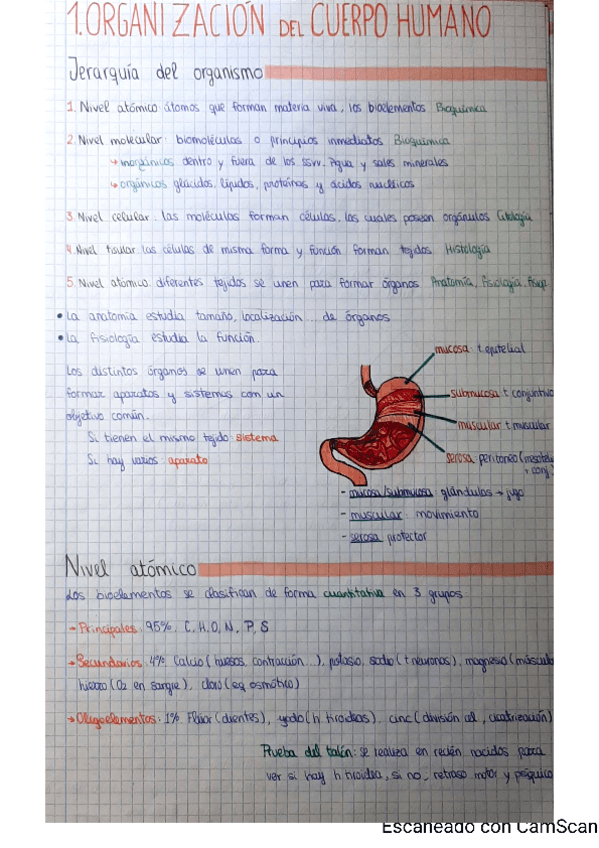 1. ORGANIZACIÓN DEL CUERPO HUMANO
Jerarquía del organismo
1. Nivel atómico: átomos que forman materia viva, los bioelementos Bioquímica
2. Nivel molecular: biomoléculas o principios inmediatos Bioquímica
→ inorgánicos dentro y fuera de los ssvv. Agua y sales minerales
→ orgánicos glúcidos, lípidos, proteínas y ácidos nucléicos
3. Nivel celular: las moléculas forman células, las cuales poseen orgánulos Citología
4. Nivel tisular: las células de misma forma y función forman tejidos Histología
5. Nivel atómico: diferentes tejidos se unen para formar órganos Anatomía, Fisiología, Fisep
• La anatomía estudia tamaño, localización... de órganos
• La fisiología estudia la función.
Los distintos órganos se unen para
formar aparatos y sistemas con un
objetivo común.
Si tienen el mismo tejido: sistema
Si hay varios: aparato
mucosa: t. epitelial
submucosa t conjuntivo
muscular t muscular
serosa: peritoneo (mesotelio
+ conj.)
- mucosa/submucosa: glándulas → jugo
- muscular: movimiento
- serosa protector
Nivel atómico
Los bioelementos se clasifican de forma cuantitativa en 3 grupos
→ Principales: 95%. C, H, O, N, P, S
→ Secundarios: 4% Calcio (huesos, contracción...), potasio, sodio (t neuronas), magnesio (músculo
hierro (O₂ en sangre), cloro (eq osmótico)
→ Oligoelementos: 1% Flúor (dientes), yodo (h. tiroideas), cinc (división cel, cicatrización)
Prueba del talón: se realiza en recién nacidos para
ver si hay h tiroidea, si no, retraso motor y psíquico
Escaneado con CamScan